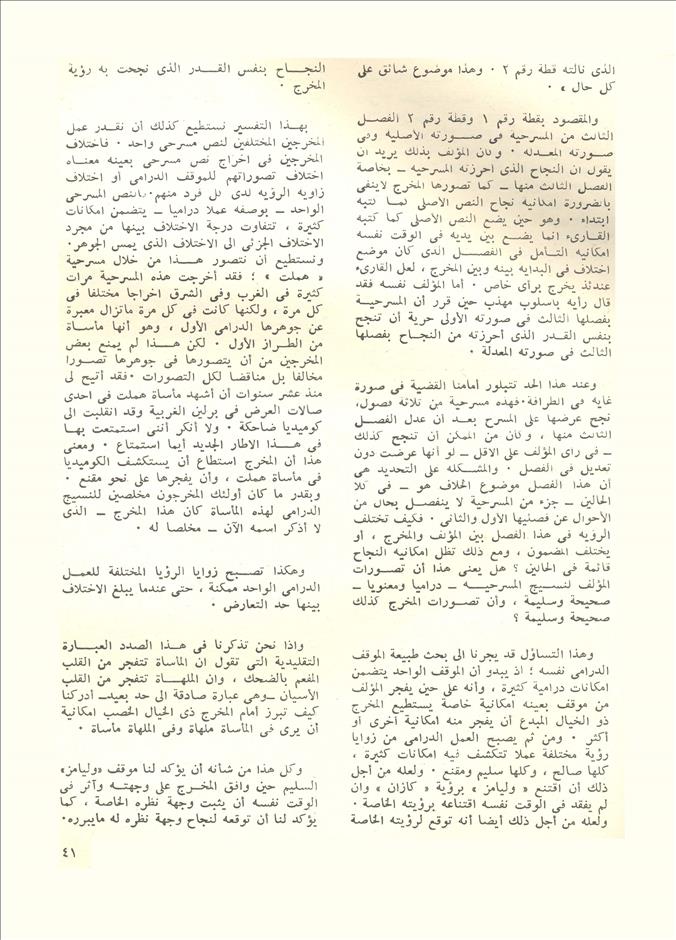 الذى نالته قطة رقم ٢ ٠ وهذا موضوع شائق على
كل حال » ٠
والمقصود بقطة رقم ١ وقطة رقم ٢ الفصل
الثالث من المسرحية فى صــورته الأصليه وفى
صــورته المعدله ٠ وكان المؤلف بذلك يريد ان
يقول ان النجاح الذى احرزته المسرحيه ــ بخاصة
الفصل الثالث منها ــ كما تصورها المخرج لاينفى
بالضرورة امكانيه نجاح النص الاصلى كما كتبه
ابتداء ٠ وهو حين يضع النص الاصلى كما كتبه
القارىء انما يضــع بين يديه فى الوقت نفسه
امكانيه التــأمل فى الفصــل الذى كان موضع
اختلاف فى البدايه بينه وبين المخرج ، لعل القارىء
عندئذ يخرج برأى خاص ٠ أما المؤلف نفسه فقد
قال رأيه باسلوب مهذب حين قرر أن المسرحيــة
بفصلها الثالث فى صورته الأولى حرية أن تنجح
بنفس القدر الذى أحرزته من النجــاح بفصلها
الثالث فى صورته المعدلة ٠
وعند هذا الحد تتبلور أمامنا القضية فى صورة
غايه فى الطرافة٠فهذه مسرحية من ثلاثة فصول،
نجح عرضها على المسرح بعــد أن عدل الفصــل
الثالث منها ، وكان من الممكن أن تنجح كذلك
ــ فى راى المؤلف على الاقل ــ لو أنها عرضت دون
تعديل فى الفصل ٠ والمشــكله على التحديد هى
أن هذا الفصل موضوع الخلاف هو ــ فى كلا
الحالين ــ جزء من المسرحية لا ينفصــل بحال من
الأحوال عن فصليها الأول والثانى ٠ فكيف تختلف
الرؤيه فى هذا الفصل بين المؤلف والمخرج ، أو
يختلف المضمون ، ومع ذلك تظل امكانيه النجاح
قائمة فى الحالين ؟ هل يعنى هذا أن تصــورات
المؤلف لنســيج المسرحيــــه ــ دراميا ومعنويا ــ
صحيحة وسليمة ، وأن تصــورات المخرج كذلك
صحيحة وسليمة ؟
وهذا التساؤل قد يجرنا الى بحث طبيعة الموقف
الدرامى نفسه ؛ اذ يبدو أن الموقف الواحد يتضمن
امكانات درامية كثيرة ، وأنه على حين يفجر المؤلف
من موقف بعينه امكانية خاصة يستطيع المخرج
ذو الخيال المبدع أن يفجر منه امكانية أخرى أو
أكثر ٠ ومن ثم يصبح العمل الدرامى من زوايا
رؤية مختلفة عملا تتكشف فيه امكانات كثيرة ،
كلها صالح ، وكلها سليم ومقنع ٠ ولعله من أجل
ذلك أن اقتنع « وليامز » برؤية « كازان » وان
لم يفقد فى الوقت نفسه اقتناعه برؤيته الخاصة ٠
ولعله من أجل ذلك أيضا أنه توقع لرؤيته الخاصة
النجــاح بنفس القــدر الذى نجحت به رؤية
المخرج ٠
بهــذا التفسير نستطيع كذلك أن نقــدر عمل
المخرجين المختلفين لنص مسرحى واحد ٠ فاختلاف
المخرجين فى اخراج نص مسرحى بعينه معنــاه
اختلاف تصوراتهم للموقف الدرامى أو اختلاف
زاويه الرؤيه لدى كل فرد منهم٠فالنص المسرحى
الواحد ــ بوصفه عملا دراميا ــ يتضمن امكانات
كثيرة ، تتفاوت درجة الاختلاف بينها من مجرد
الاختلاف الجزئى الى الاختلاف الذى يمس الجوهر٠
ونستطيع أن نتصور هــذا من خلال مسرحية
« هملت » ؛ فقد أخرجت هذه المسرحية مرات
كثيرة فى الغرب وفى الشرق اخراجا مختلفا فى
كل مرة ، ولكنها كانت فى كل مرة ماتزال معبرة
عن جوهرها الدرامى الأول ، وهو أنها مأســاة
من الطــراز الأول ٠ لكن هــذا لم يمنع بعض
المخرجين من أن يتصورها فى جوهرها تصــورا
مخالفا بل مناقضا لكل التصورات ٠فقد أتيح لى
منذ عشر سنوات أن أشهد مأساة هملت فى احدى
صالات العرض فى برلين الغربية وقد انقلبت الى
كوميديا ضاحكة ٠ ولا أنكر أننى استمتعت بهــا
فى هــذا الاطار الجديد أيما استمتاع ٠ ومعنى
هذا أن المخرج استطاع أن يستكشف الكوميديا
فى مأساة هملت ، وأن يفجرها على نحو مقنع ٠
وبقدر ما كان أولئك المخرجون مخلصين للنسيج
الدرامى لهذه المأساة كان هذا المخرج ــ الذى
لا أذكر اسمه الآن ــ مخلصا له ٠
وهكذا تصــبح زوايا الرؤيا المختلفة للعمــل
الدرامى الواحد ممكنة ، حتى عندما يبلغ الاختلاف
بينها حد التعارض ٠
واذا نحن تذكرنا فى هــذا الصدد العبــارة
التقليدية التى تقول ان المأساة تتفجر من القلب
المفعم بالضحك ، وان الملهــاة تتفجر من القلب
الأسيان ــوهى عبارة صادقة الى حد بعيدــ أدركنا
كيف تبرز أمام المخرج ذى الخيال الخصب امكانية
أن يرى فى المأساة ملهاة وفى الملهاة مأساة ٠
وكل هذا من شأنه أن يؤكد لنا موقف «وليامز»
السليم حين وافق المخرج على وجهتــه وآثر فى
الوقت نفسه أن يثبت وجهة نظره الخاصة ، كما
يؤكد لنا أن توقعه لنجاح وجهة نظره له مايبرره٠
٤١